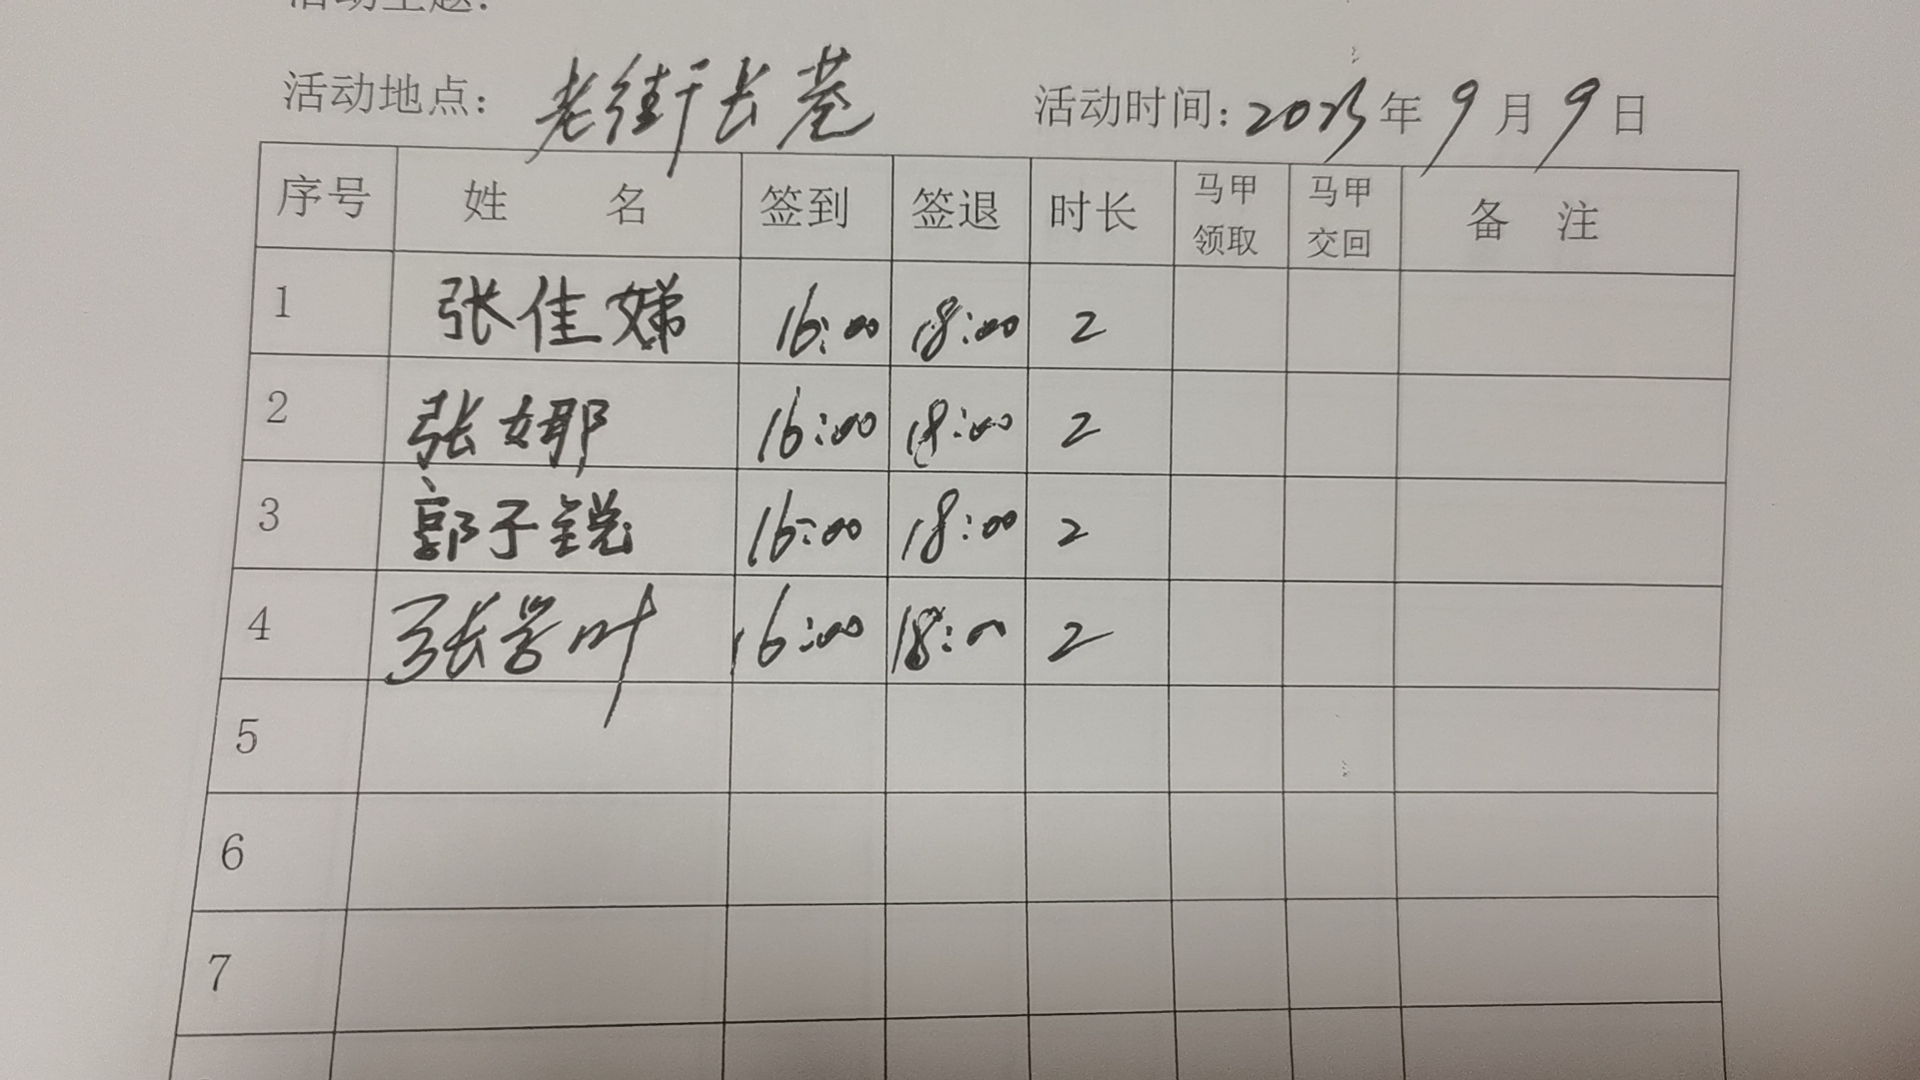 活动主题：
活动地点：老街长巷 活动时间：2023年9月9日
序号 姓名 签到 签退 时长 马甲领取 马甲交回 备注
1 张佳娣 16:00 18:00 2
2 张娜 16:00 18:00 2
3 郭子锐 16:00 18:00 2
4 张 叶 16:00 18:00 2
5
6
7